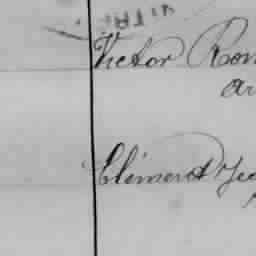 Victor Rom
ar
Clément Jea